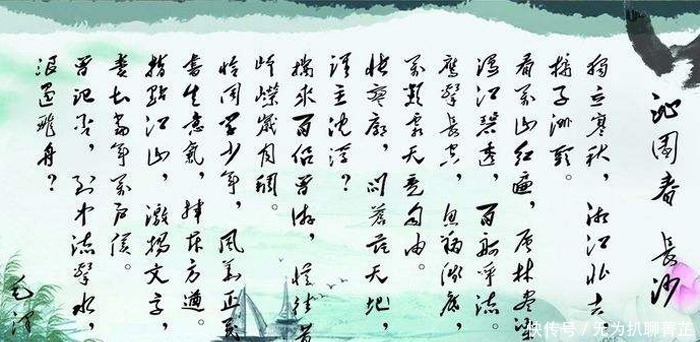 沁园春 长沙
独立寒秋，湘江北去
橘子洲头。
看万山红遍，层林尽染
漫江碧透，百舸争流。
鹰击长空，鱼翔浅底，
万类霜天竞自由。
怅寥廓，问苍茫天地，
谁主沉浮？
携来百侣曾游，忆往昔
峥嵘岁月稠。
恰同学少年，风华正茂
书生意气，挥斥方遒。
指点江山，激扬文字，
粪土当年万户侯。
曾记否，到中流击水，
浪遏飞舟？
毛泽
快传号/无为扒聊菁芷